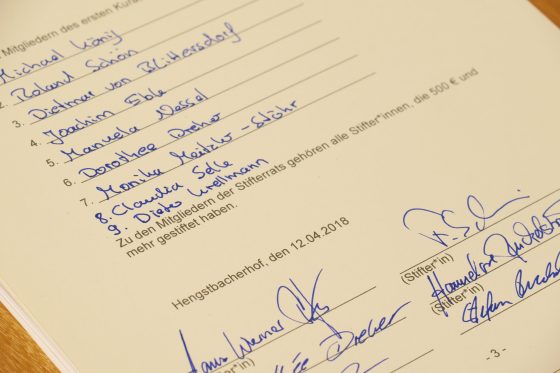 Mitgliedern des ersten Kura
Michael König
2. Roland Schön
3. Dietmar von Blittersdorf
4. Joachim Eble
5. Manuela Nessel
6. Dorothee Dreher
7. Monika - Stöhr
8. Claudia Selle
9. Dieter Wellmann
Zu den Mitgliedern der Stifterrats gehören alle Stifter*innen, die 500 € und
mehr gestiftet haben.
Hengstbacherhof, den 12.04.2018
(Stifter*in)
Hannelore
(Stifter*in)
Stefan
Hans Werner
Dreher
- 3 -